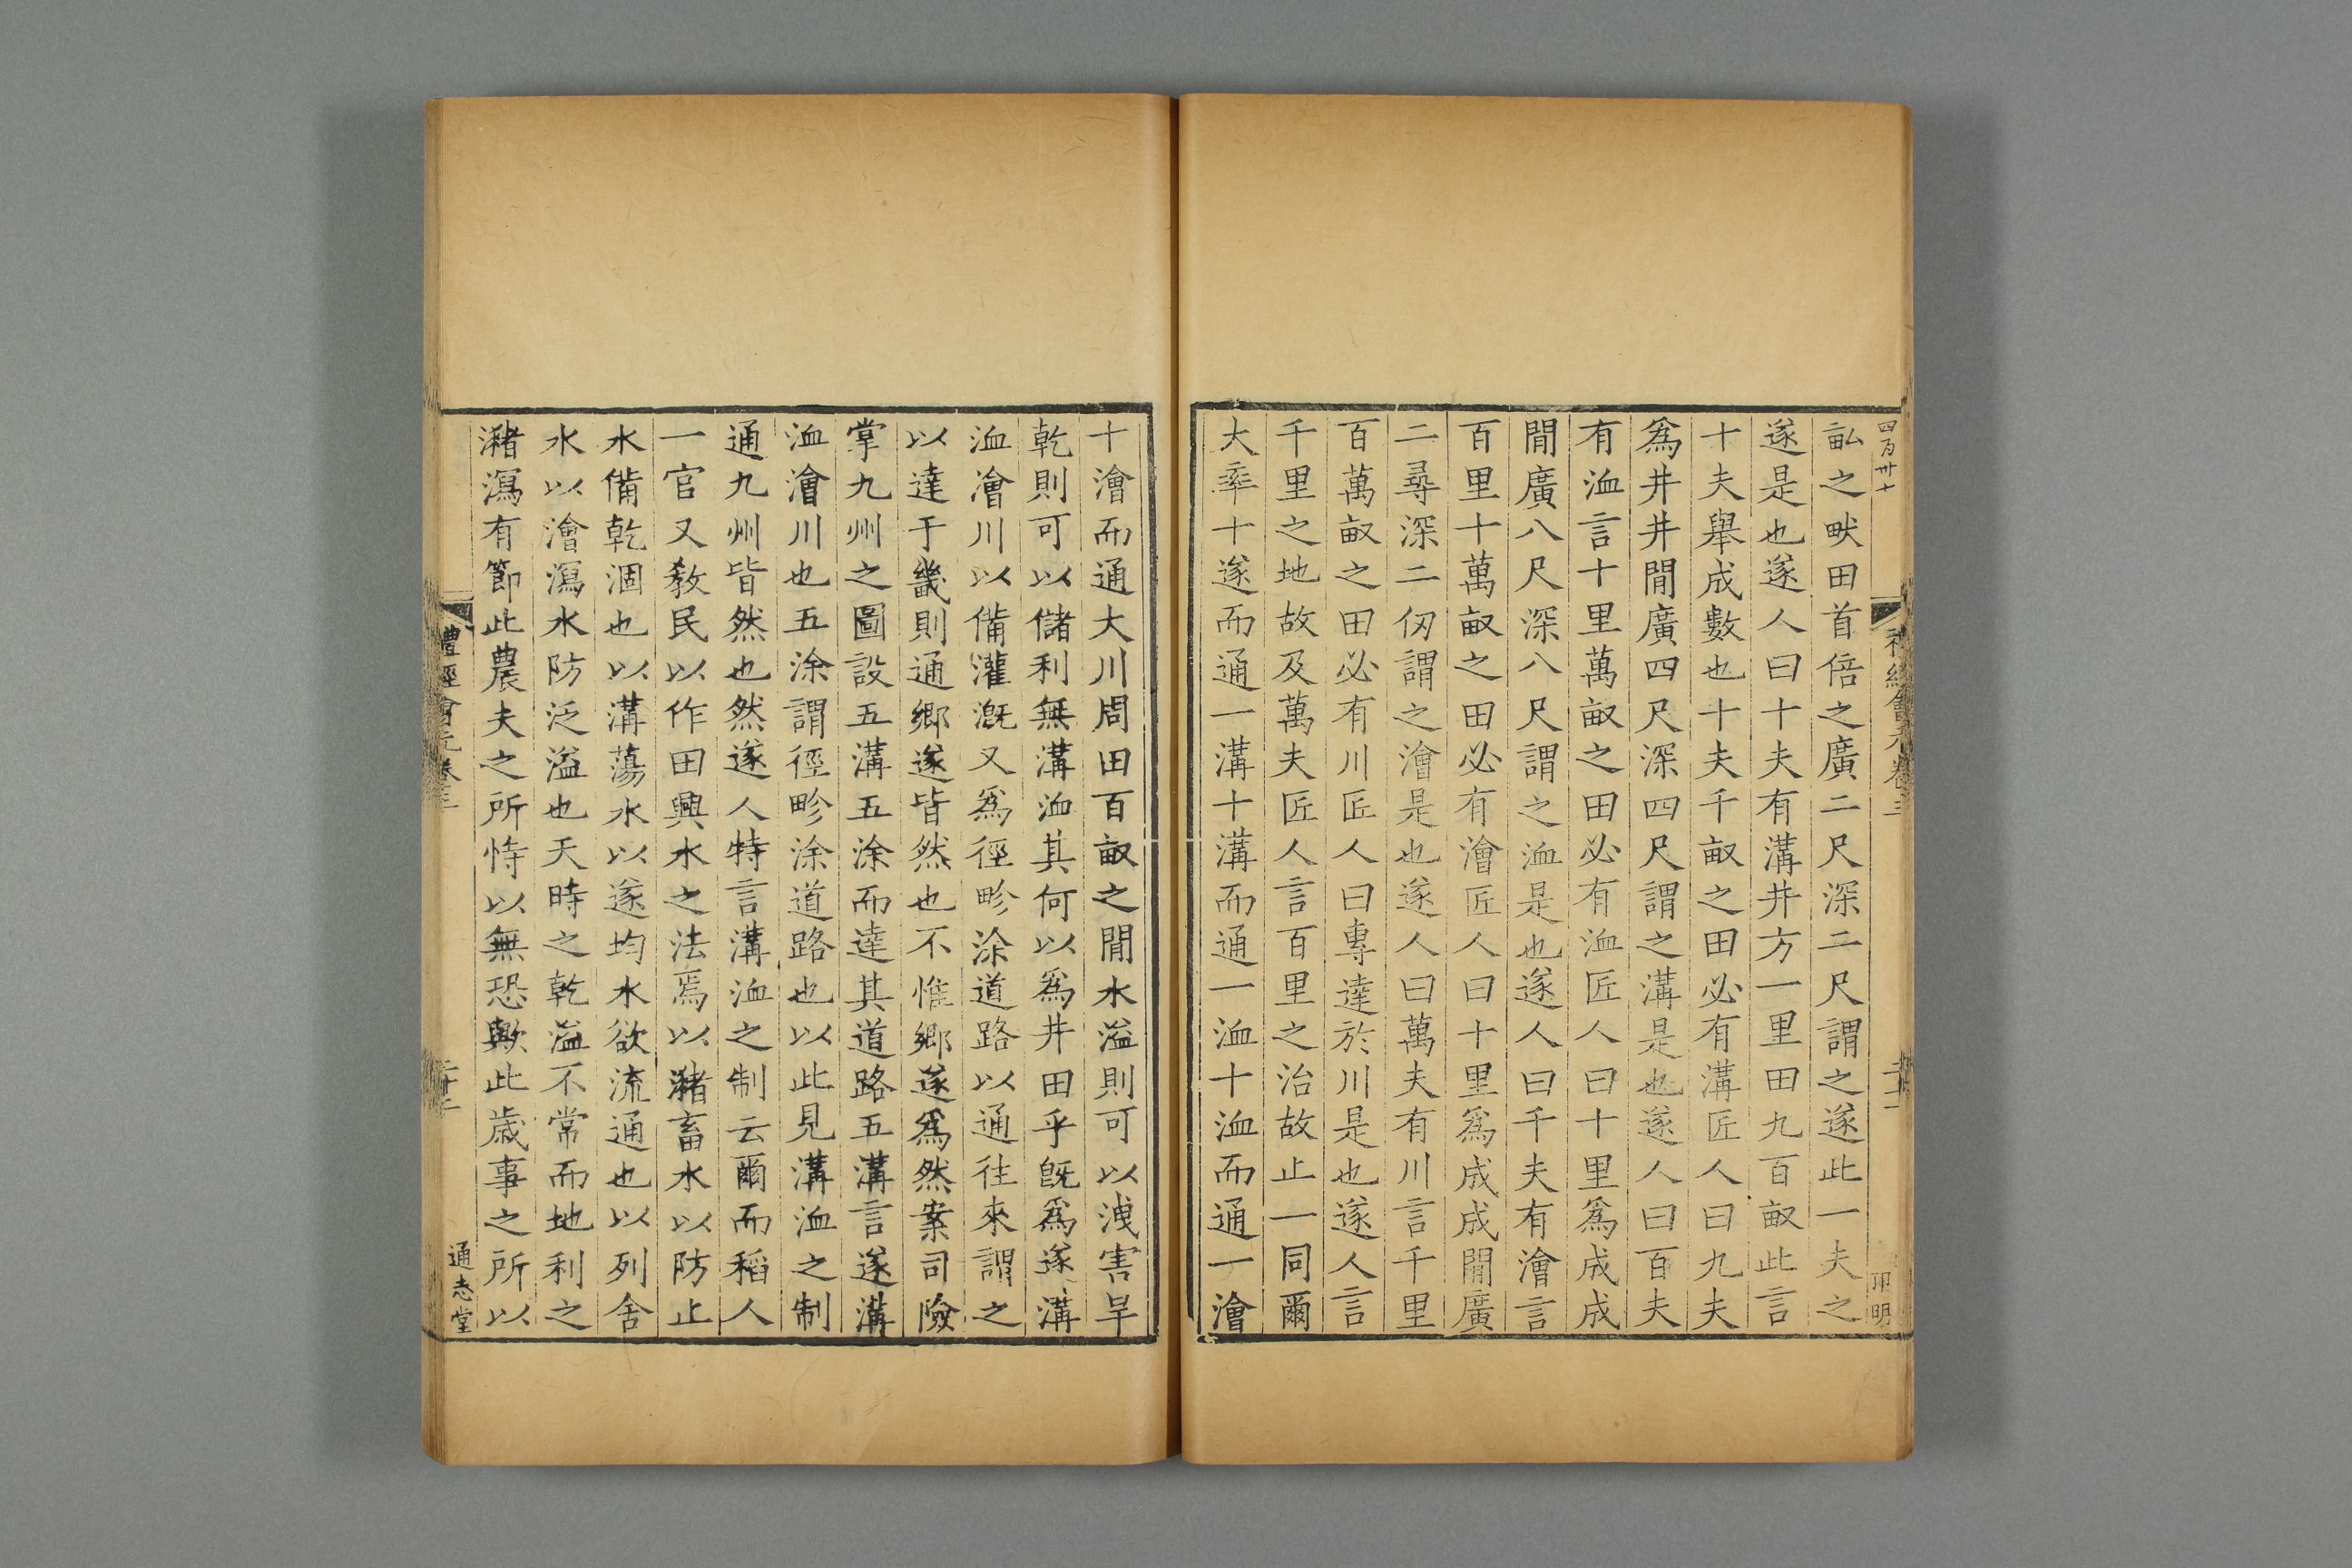 四百卅十
禮經會元卷三
二十二
卬明
畆之畎田首倍之廣二尺深二尺謂之遂此一夫之
遂是也遂人曰十夫有溝井方一里田九百畝此言
十夫舉成數也十夫千畝之田必有溝匠人曰九夫
爲井井閒廣四尺深四尺謂之溝是也遂人曰百夫
有洫言十里萬畝之田必有洫匠人曰十里爲成成
閒廣八尺深八尺謂之洫是也遂人曰千夫有澮言
百里十萬畝之田必有澮匠人曰十里爲成成閒廣
二尋深二仞謂之澮是也遂人曰萬夫有川言千里
百萬畝之田必有川匠人曰專達於川是也遂人言
千里之地故及萬夫匠人言百里之治故止一同爾
大率十遂而通一溝十溝而通一洫十洫而通一澮
十澮而通大川周田百畝之閒水溢則可以洩害旱
乾則可以儲利無溝洫其何以爲井田乎旣爲遂溝
洫澮川以備灌漑又爲徑畛涂道路以通徃來謂之
以達于畿則通鄉遂皆然也不惟鄉遂爲然案司險
掌九州之圖設五溝五涂而達其道路五溝言遂溝
洫澮川也五涂謂徑畛涂道路也以此見溝洫之制
通九州皆然也然遂人特言溝洫之制云爾而稻人
一官又敎民以作田興水之法焉以瀦畜水以防止
水備乾涸也以溝蕩水以遂均水欲流通也以列舍
水以澮瀉水防泛溢也天時之乾溢不常而地利之
瀦瀉有節此農夫之所恃以無恐歟此歲事之所以
禮經會元卷三
二十二
通志堂